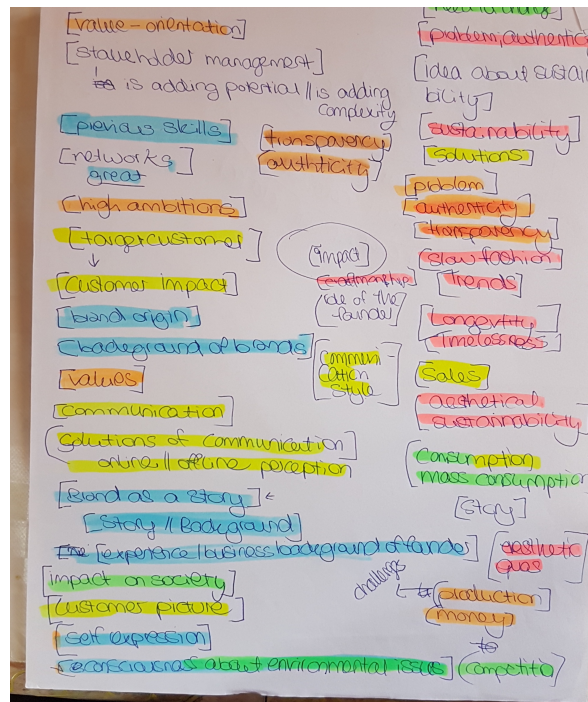 [value-orientation]
[stakeholder management]
is adding potential // is adding
complexity
[previous skills]
[networks]
great
[high ambitions]
[target customer]
↓
[customer impact]
[brand origin]
[background of brands]
[values]
[communication]
[solutions of communication
online // offline perception
[Brand as a story]
[Story // Background]
[experience / business background of founder]
[impact on society]
[customer picture]
[self expression]
consciousnes about environmental issues]
[transparency]
authticity]
[impact]
role of the
founder]
[Communi-
cation
Style]
[problem, authentici
[idea about sustai
bility]
[sustainability]
[solutions]
[problem]
[authenticity]
[transparency]
[slow fashion]
[Trends]
[longevtity
timelessness]
[Sales]
[aesthetical
sustannability]
[consumption
mass consumption
[story]
[aesthetic
challenges
[production]
[money]